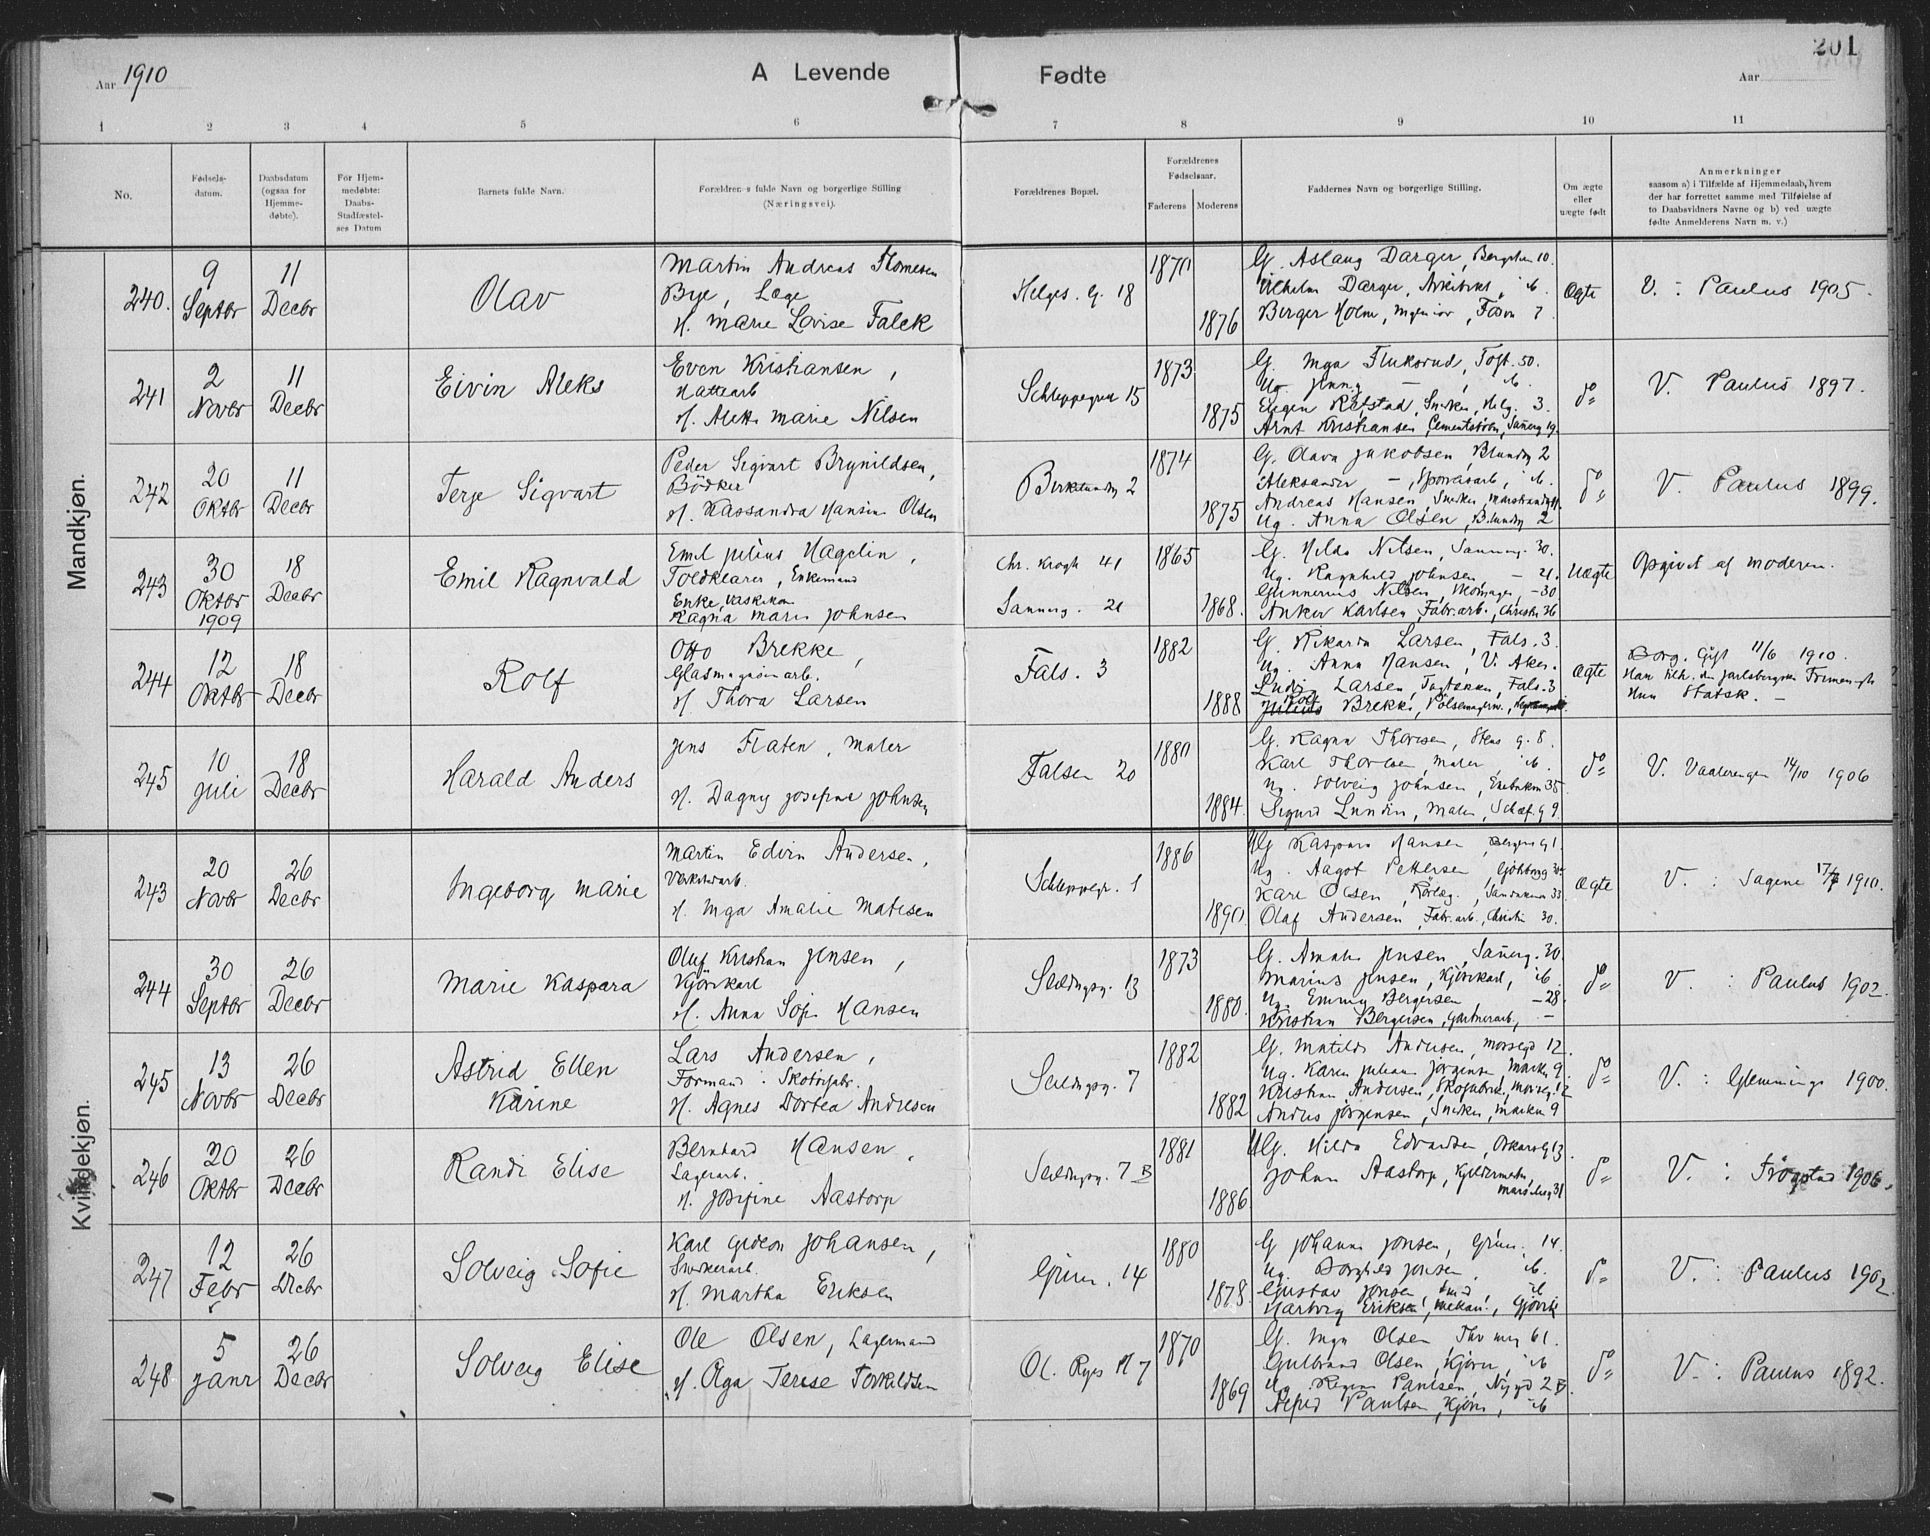 201
Aar 1910
A Levende Fødte
Aar
1 2 3 4 5 6 7 8 9 10 11
No.
Fødsels-
datum.
Daabsdatum
(ogsaa for
Hjemme-
døbte).
For Hjem-
medøbte:
Daabs-
Stadfæstel-
ses Datum
Barnets fulde Navn.
Forældrenes fulde Navn og borgerlige Stilling
(Næringsvei).
Forældrenes Bopæl.
Forældrenes
Fødselsaar.
Faderens Moderens
Faddernes Navn og borgerlige Stilling.
Om ægte
eller
uægte født
Anmerkninger
saasom a) i Tilfælde af Hjemmedaab, hvem
der har forrettet samme med Tilføielse af
to Daabsvidners Navne og b) ved uægte
fødte Anmelderens Navn m. v.)
Mandkjøn.
240. 9 Septbr 11 Decbr Olav
Martin Andreas Thomesen
Bye, Læge
H. Marie Lovise Falck
Helges. g. 18 1870 1876
G. Aslaug Darger, Bergslien 10.
Vilhelm Darger, Arkitekt, ib.
Berger Holm, Ingeniør, 7
Ægte V. : Paulus 1905.
241 2 Novbr 11 Decbr Eivin Aleks
Even Kristiansen,
Hattearb
H. Aletta Marie Nilsen
Schleppegrel 15 1873 1875
G. Inga Fluksrud, Toft. 50.
Ug. Jenny — , ib.
Eugen Refstad, Snedker, Helg. 3.
Arnt Kristiansen, Sannerg 19.
do V. Paulus 1897.
242 20 Oktbr 11 Decbr Terje Sigvart
Peder Sigvart Brynildsen,
Bödker
H. Kassandra Hansine Olsen
Birkelundsg 2 1874 1875
G. Olava Jakobsen, B.lundg 2
Aleksander — , Sporvásarb, ib.
Andreas Hansen, Snedker,
Ug. Anna Olsen, B.lundg 2
do V. Paulus 1899.
243 30 Oktbr 1909 18 Decbr Emil Ragnvald
Emil Julius Hagelin,
Toldklarer, Enkemand
Enke, Vaskekone
Ragna Marie Johnsen
Chr. Krogh 41
Sannerg. 21 1865 1868.
G. Hilda Nilsen, Sannerg. 30.
Ug. Ragnhild Johnsen, — 21.
Gunnerius Nilsen, Skomager, — 30
Anker Karlsen, Fabr.arb., Christies 36
Uægte Opgivet af moderen.
244 12 Oktbr 18 Decbr Rolf
Otto Brekke,
Glasmagasinarb.
H. Thora Larsen
Fals. 3 1882 1888
G. Rikarda Larsen, Fals. 3.
Ug. Anna Hansen, V. Aker.
Ludvig Larsen, Fals. 3
Rolf Brekke, Pölsemagersv.,
Ægte Borg. Gift 11/6 1910.
Han tilh. den Jarlsbergske Frimenigh
Hun Statsk. —
245 10 Juli 18 Decbr Harald Anders
Jens Flaten, Maler
H. Dagny Josefine Johnsen
Falsen 20 1880 1884.
G. Ragna Thoresen, Stens g. 8.
Karl Thoresen, Maler, ib.
Ug. Solveig Johnsen, Enebakvn 35
Sigurd Lundin, Maler, Schæf.g 9.
do V. Vaalerengen 14/10 1906
Kvindekjøn.
243 20 Novbr 26 Decbr Ingeborg Marie
Martin Edvin Andersen,
Værkstedarb.
H. Inga Amalie Matisen
Schleppegr. 1 1886 1890
Ug Kaspara Hansen, Bergens g 1.
Ug. Aagot Pettersen,
Karl Olsen, Rørlæg., Sandakerv 33
Olaf Andersen, Fabr.arb., Christies 30.
Ægte V. : Sagene 17/7 1910.
244 30 Septbr 26 Decbr Marie Kaspara
Oluf Kristian Jensen,
Kjörekarl
H. Anna Sofie Hansen
Seildugsg. 13 1873 1880.
G. Amalie Jensen, Sannerg. 30
Marius Jensen, Kjörekarl, ib.
Ug. Emmy Bergersen, — 28
Kristian Bergersen, Gartnerarb., —
do V. : Paulus 1902.
245 13 Novbr 26 Decbr Astrid Ellen Karine
Lars Andersen,
Formand i Skotöifabr.
H. Agnes Dortea Andresen
Seildugsg. 7 1882 1882
G. Matilde Andersen, Mosseg 12.
Ug. Karen Juliane Jörgensen, Markv 9.
Kristian Andersen, Skofabrik, Mosseg. 12
Anders Jörgensen, Snedker, Markv 9
do V. : Glemminge 1900.
246 20 Oktbr 26 Decbr Randi Elise
Bernhard Hansen,
Lagerarb.
H. Josefine Aastorp
Seildugsg. 7 B 1881 1886
Ug. Hilda Edvardsen, Oskarsg 13.
Johan Aastorp, Kjeldermester,
31
do V. : Trögstad 1906.
247 12 Febr 26 Decbr Solveig Sofie
Karl Gideon Johansen,
Snekerarb.
H. Martha Eriksen
Grün. 14 1880 1878.
G Johanna Jonsen, Grün. 14.
Ug. Borghild Jonsen, ib.
Gustav Jonsen, Smed, ib
Harborg Eriksen, Mekan., Gjövik
do V. : Paulus 1902
248 5 Janr 26 Decbr Solveig Elise
Ole Olsen, Lagermand
H. Olga Terese Torkildsen
Ol. Ryes Pl 7 1870 1869
G. Inga Olsen, Thv. Mey 61.
Gulbrand Olsen, Kjörer, ib
Ug. Ragna Paulsen, Nygd 2 B.
Alfred Paulsen, Kjörer, ib
do V. : Paulus 1892.